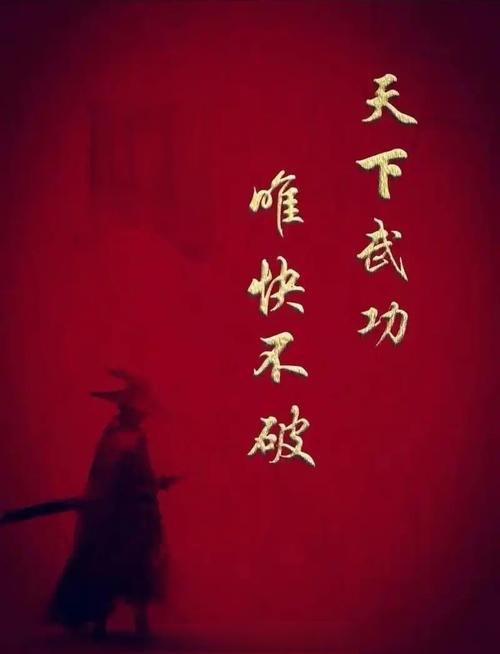 天下武功
唯快不破